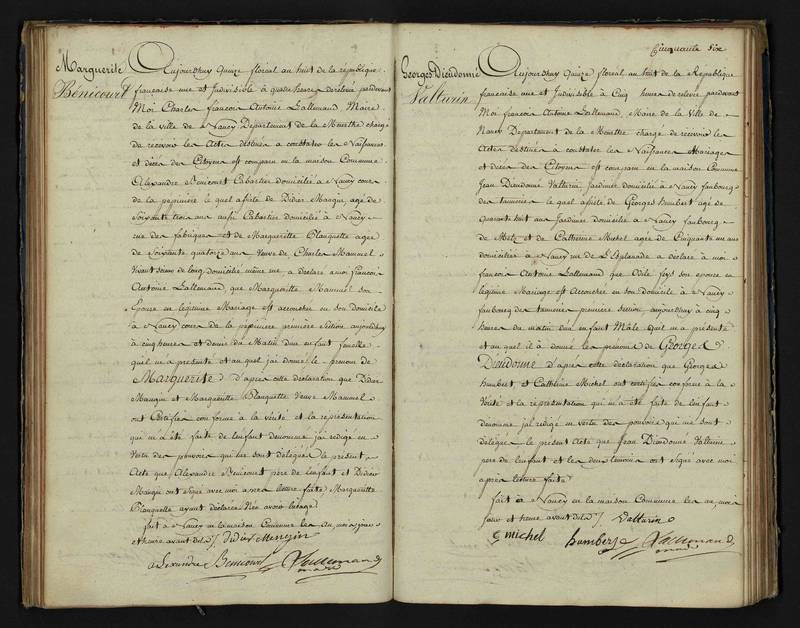 Marguerite
Bénicourt
Aujourdhuy Quinze floreal an huit de la république
française une et Indivisible à quatre heures de relevée pardevant
Moi Charles françois Antoine Lallemand Maire
de la ville de Nancy Departement de la Meurthe chargé
de recevoir les Actes destinés a constater les Naissances
et décès des Citoyens est comparu en la maison Commune
Alexandre Benicourt Cabartier domicilié à Nancy cour
de la pepinière le quel assisté de Didier Mangin, agé de
Soixante trois ans aussi Cabartier domicilié à Nancy
rue des fabriques et de Marguerithe Blanquette agée
de Soixante quatorze ans Veuve de Charles Mammel
vivant domicilié même rue a déclaré a moi françois
Antoine Lallemand, que Marguerithe Mammel son
Epouse en légitime Mariage est accouchée en son domicile
à Nancy cour de la pepiniere première Section aujourdhuy
à cinq heures et demie du Matin d'un enfant femelle
quil m'a presenté et auquel jai donné le prenom de
Marguerite d'après cette déclaration que Didier
Mangin et Marguerithe Blanquette Veuve Mammel
ont Certifiés conforme à la Vérité et la représentation
qui m'a été faite de l'enfant denommé jai redigé en
Vertu des pouvoirs qui me sont délégués le présent
Acte que Alexandre Benicourt père de l'enfant et Didier
Mangin ont signé avec moi apres lecture faite Marguerithe
Blanquette ayant déclaré Nen avoir lusage
fait à Nancy en la maison Commune les an, mois jour
et heure avant dits Didier Mengin
alexandre Benicourt Lallemand
maire
Cinquante Six
Georges Dieudonné
Valturin
Aujourdhuy Quinze floreal an huit de la République
française une et Indivisible à Cinq heures de relevée pardevant
Moi françois Antoine Lallemand, Maire de la Ville de
Nancy Departement de la Meurthe chargé de recevoir les
Actes destinés à constater les Naissances Mariages
et décès des Citoyens est comparu en la maison Commune
Jean Dieudonné Valturin Jardinier domicilié à Nancy faubourg
des tanneries le quel assisté de Georges humbert agé de
quarante huit ans Jardinier domicilié à Nancy faubourg
de Metz et de Catherine Michel agée de Cinquante un ans
domiciliée à Nancy rue de L'Esplanade a déclaré à moi
françois Antoine Lallemand que son epouse en
légitime Mariage est Accouchée en son domicile à Nancy
faubourg des tanneries premiere section aujourdhuy à cinq
heures du matin d'un enfant Mâle quil m'a présenté
et au quel il à donné les prenoms de Georges
Dieudonné d'après cette déclaration que Georges
humbert et Cathérine Michel ont certifiés conforme à la
Vérité et la représentation qui m'a été faite de l'enfant
denommé jai redigé en vertu des pouvoirs qui me sont
délégués le présent Acte que Jean Dieudonné Valturin
pere de l'enfant et les deux temoins ont Signé avec moi
apres lecture faite
fait à Nancy en la maison Commune les an, mois
jour et heure avant dits Valturin
C michel humbert Lallemand
maire